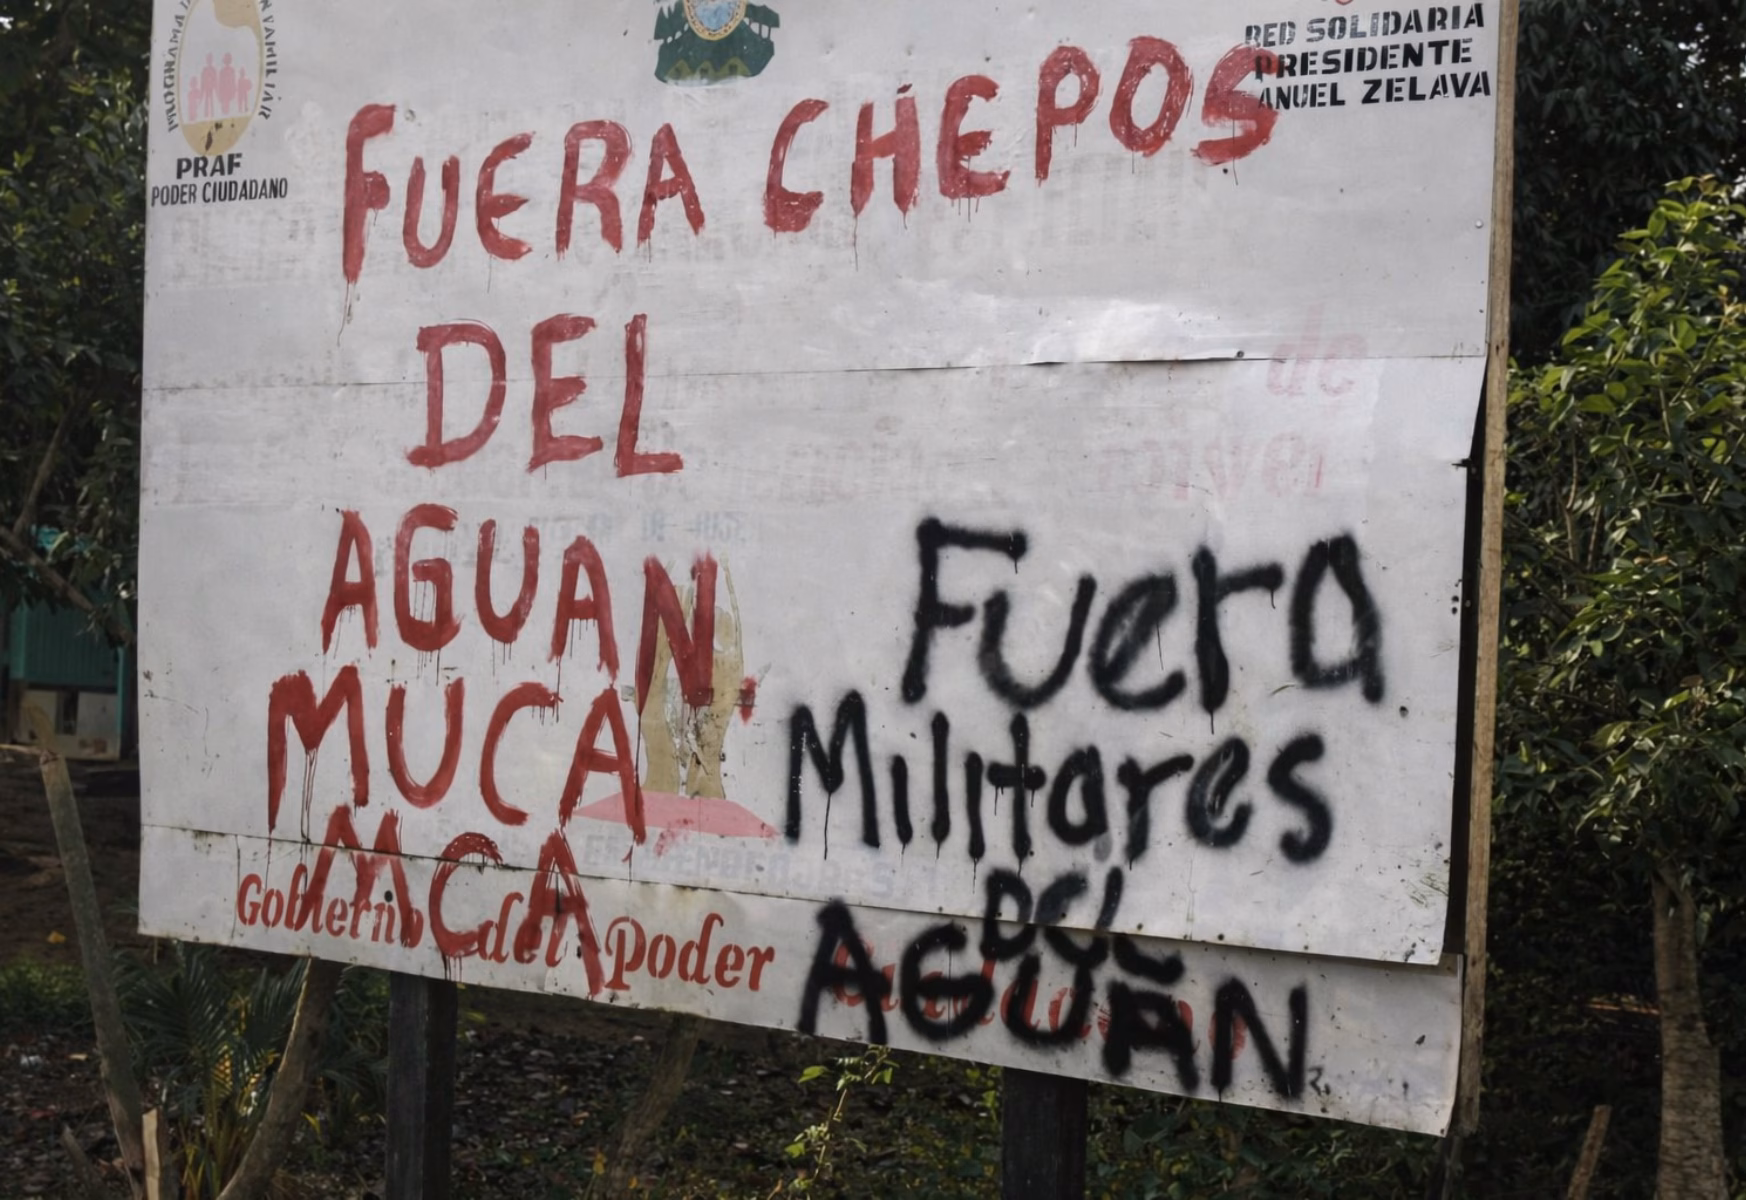 PRAF
PODER CIUDADANO
RED SOLIDARIA
PRESIDENTE
ANUEL ZELAVA
FUERA CHEPOS
DEL
AGUAN
MUCA
MCA
Fuera
Militares
DEL
AGUAN
Gobierno del Poder
de